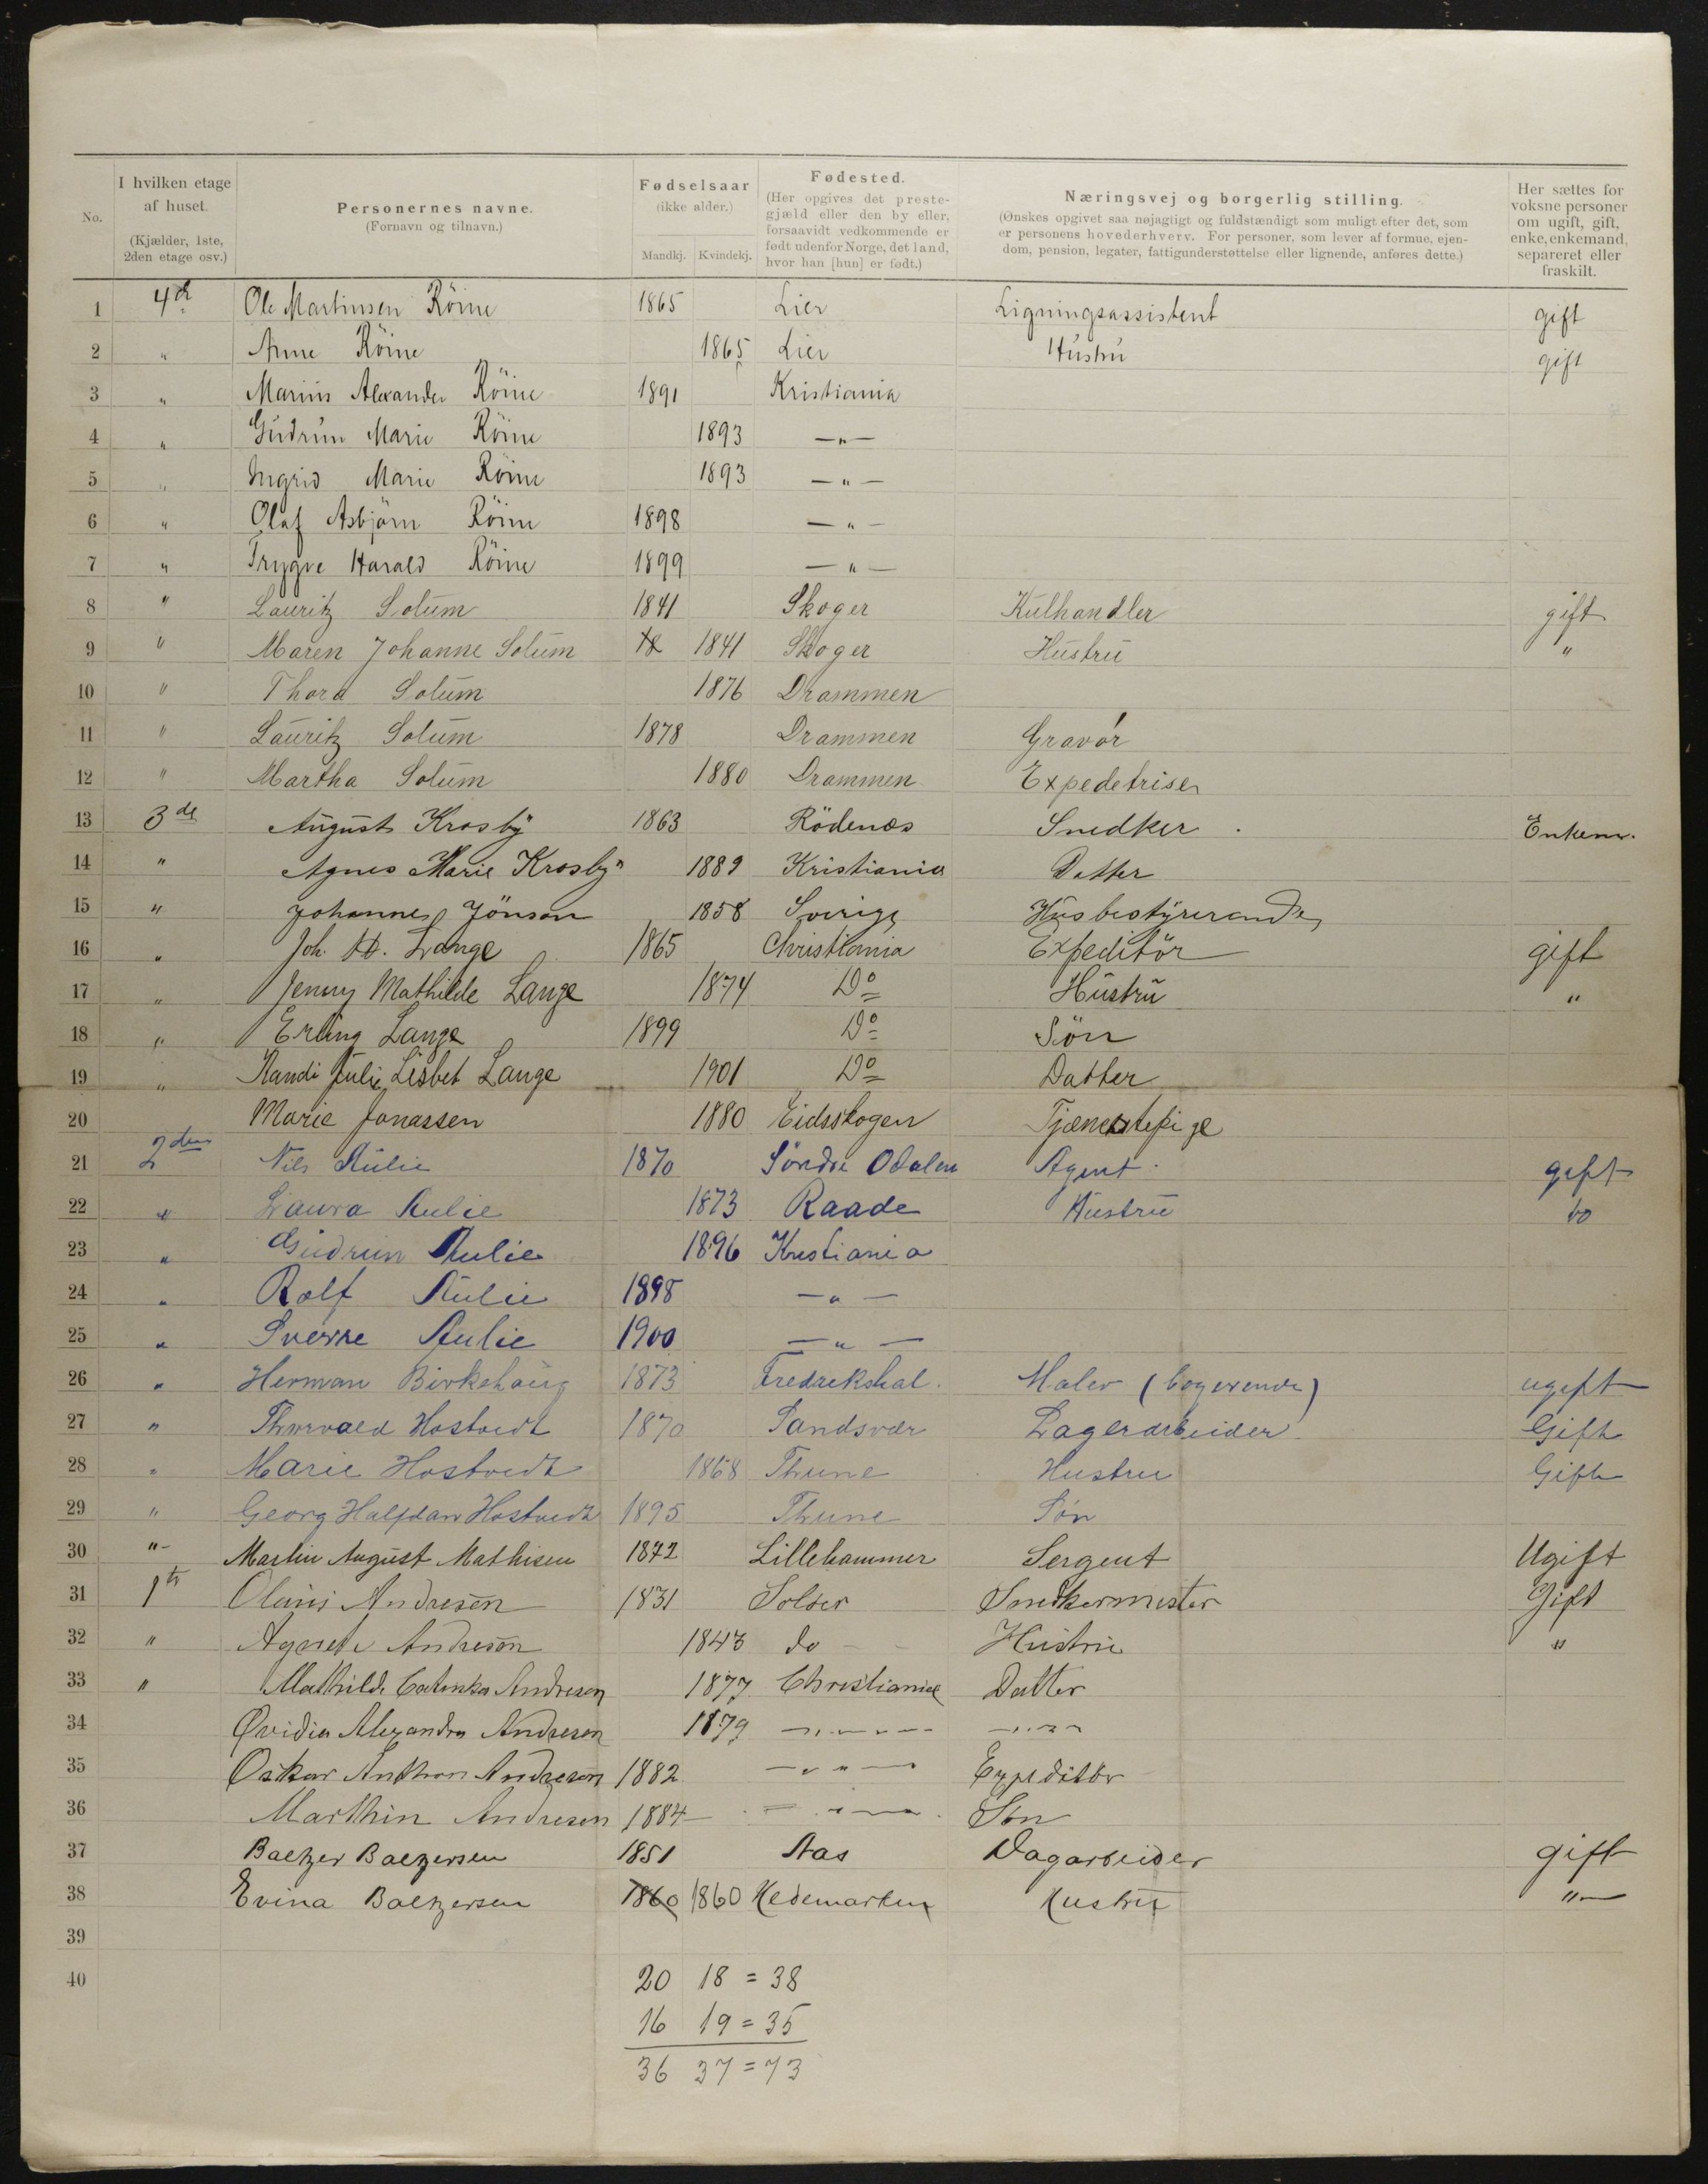 No.
I hvilken etage af huset. (Kjælder, 1ste, 2den etage osv.)
Personernes navne. (Fornavn og tilnavn.)
Fødselsaar (ikke alder.) Mandkj. Kvindekj.
Fødested. (Her opgives det prestegjæld eller den by eller, forsaavidt vedkommende er født udenfor Norge, det land, hvor han [hun] er født.)
Næringsvej og borgerlig stilling. (Ønskes opgivet saa nøjagtigt og fuldstændigt som muligt efter det, som er personens hovederhverv. For personer, som lever af formue, ejendom, pension, legater, fattigunderstøttelse eller lignende, anføres dette.)
Her sættes for voksne personer om ugift, gift, enke, enkemand, separeret eller fraskilt.
1 4d Ole Martinsen Röine 1865 Lier Ligningsassistent gift
2 " Anne Röine 1865 Lier Hustru gift
3 " Marius Alexander Röine 1891 Kristiania
4 " Gudrun Marie Röine 1893 —"—
5 " Ingrid Marie Röine 1893 —"—
6 " Olaf Asbjörn Röine 1898 —"—
7 " Trygve Harald Röine 1899 —"—
8 " Lauritz Solum 1841 Skoger Kulhandler gift
9 " Maren Johanne Solum 18 1841 Skoger Hustru "
10 " Thora Solum 1876 Drammen
11 " Lauritz Solum 1878 Drammen Gravør
12 " Martha Solum 1880 Drammen Expedetrise
13 3de August Krosby 1863 Rödenes Snedker Enkem.
14 " Agnes Marie Krosby 1889 Kristiania Datter
15 " Johanne Jönson 1858 Sverige Husbestyrerande
16 " Joh. Lange 1865 Christiania Expeditör gift
17 " Jenny Mathilde Lange 1874 Do Hustru "
18 " Erling Lange 1899 Do Sön
19 " Randi Julie Lisbet Lange 1901 Do Datter
20 Marie Jonassen 1880 Eidsskogen Tjenestepige
21 2den Nils Aulie 1870 Söndre Odalen Agent gift
22 " Laura Aulie 1873 Raade Hustru do
23 " Gudrun Aulie 1896 Kristiania
24 " Rolf Aulie 1898 —"—
25 " Sverre Aulie 1900 —"—
26 " Herman Birkehaug 1873 Fredrekshal. Maler ugift
27 " Thorvald Hostvedt 1870 Sandsvær Lagerarbeider Gift
28 " Marie Hostvedt 1868 Thune Hustru Gift
29 " Georg Halfdan Hostvedt 1895 Thune Søn
30 "- Martin August Mathisen 1872 Lillehammer Sergent Ugift
31 1te Olaus Andresen 1831 Soløer Snedkermester Gift
32 " Agnete Andresen 1843 do Hustru "
33 " Mathilde Catinka Andresen 1877 Christiania Datter
34 Øvidia Alexandra Andresen 1879 —"— —"—
35 Oskar Anthon Andresen 1882 —"— Expeditör
36 Marthin Andresen 1884 —"— Søn
37 Baltzer Baltzersen 1851 Aas Dagarbeider gift
38 Evina Baltzersen 1860 1860 Hedemarken Hustru "—
39
40
20 18 = 38
16 19 = 35
36 37 = 73